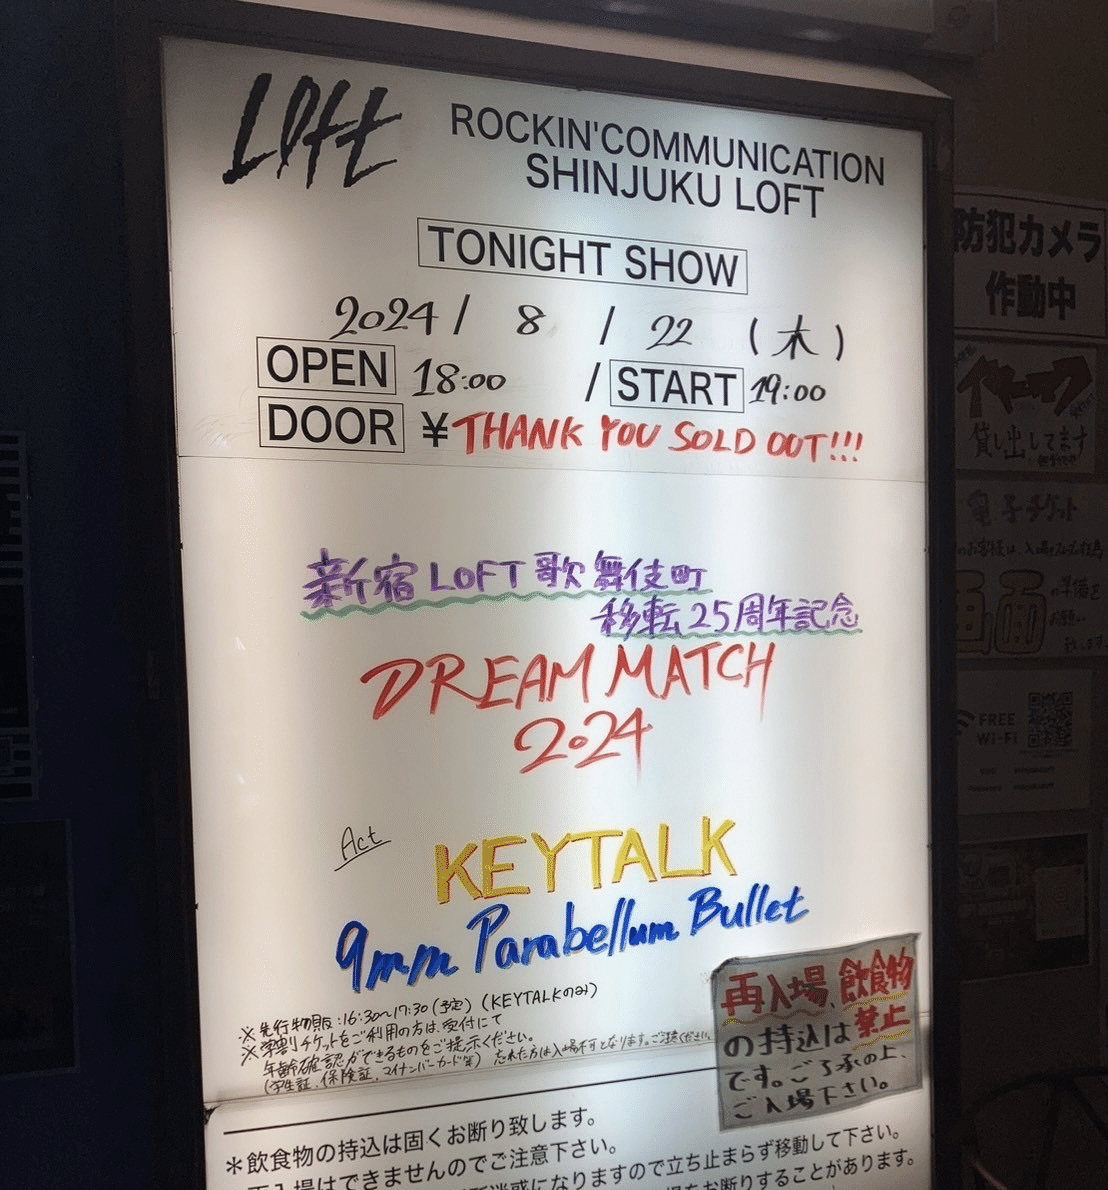 Loft
ROCKIN'COMMUNICATION
SHINJUKU LOFT
TONIGHT SHOW
2024 / 8 / 22 (木)
OPEN 18:00 / START 19:00
DOOR ¥THANK YOU SOLD OUT!!!
新宿LOFT歌舞伎町
移転25周年記念
DREAM MATCH
2024
Act
KEYTALK
9mm Parabellum Bullet
※先行物販:16:30~17:30(予定)(KEYTALKのみ)
※学割チケットをご利用の方は、受付にて
年齢確認ができるものをご提示ください。
(学生証、保険証、マイナンバーカード等) 忘れた方は入場不可となります。ご注意ください。
再入場、飲食物
の持込は禁止
です。ご了承の上、
ご入場下さい。
*飲食物の持込は固くお断り致します。
再入場はできませんのでご注意下さい。
迷惑になりますので立ち止まらず移動して下さい。
をお断りすることがあります。
防犯カメラ
作動中
貸し出してます
電子チケット
画面
の準備を
お願い
FREE
Wi-Fi